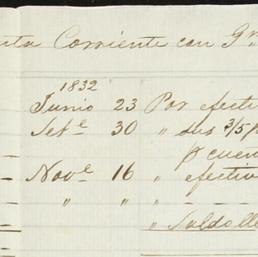 uta Corriente con Gr
1832
Junio 23 Por efecti
Set.e 30 " sus 3/5 p
p cuen
Nov.e 16 " efectiv
" " " -
" Saldo lle